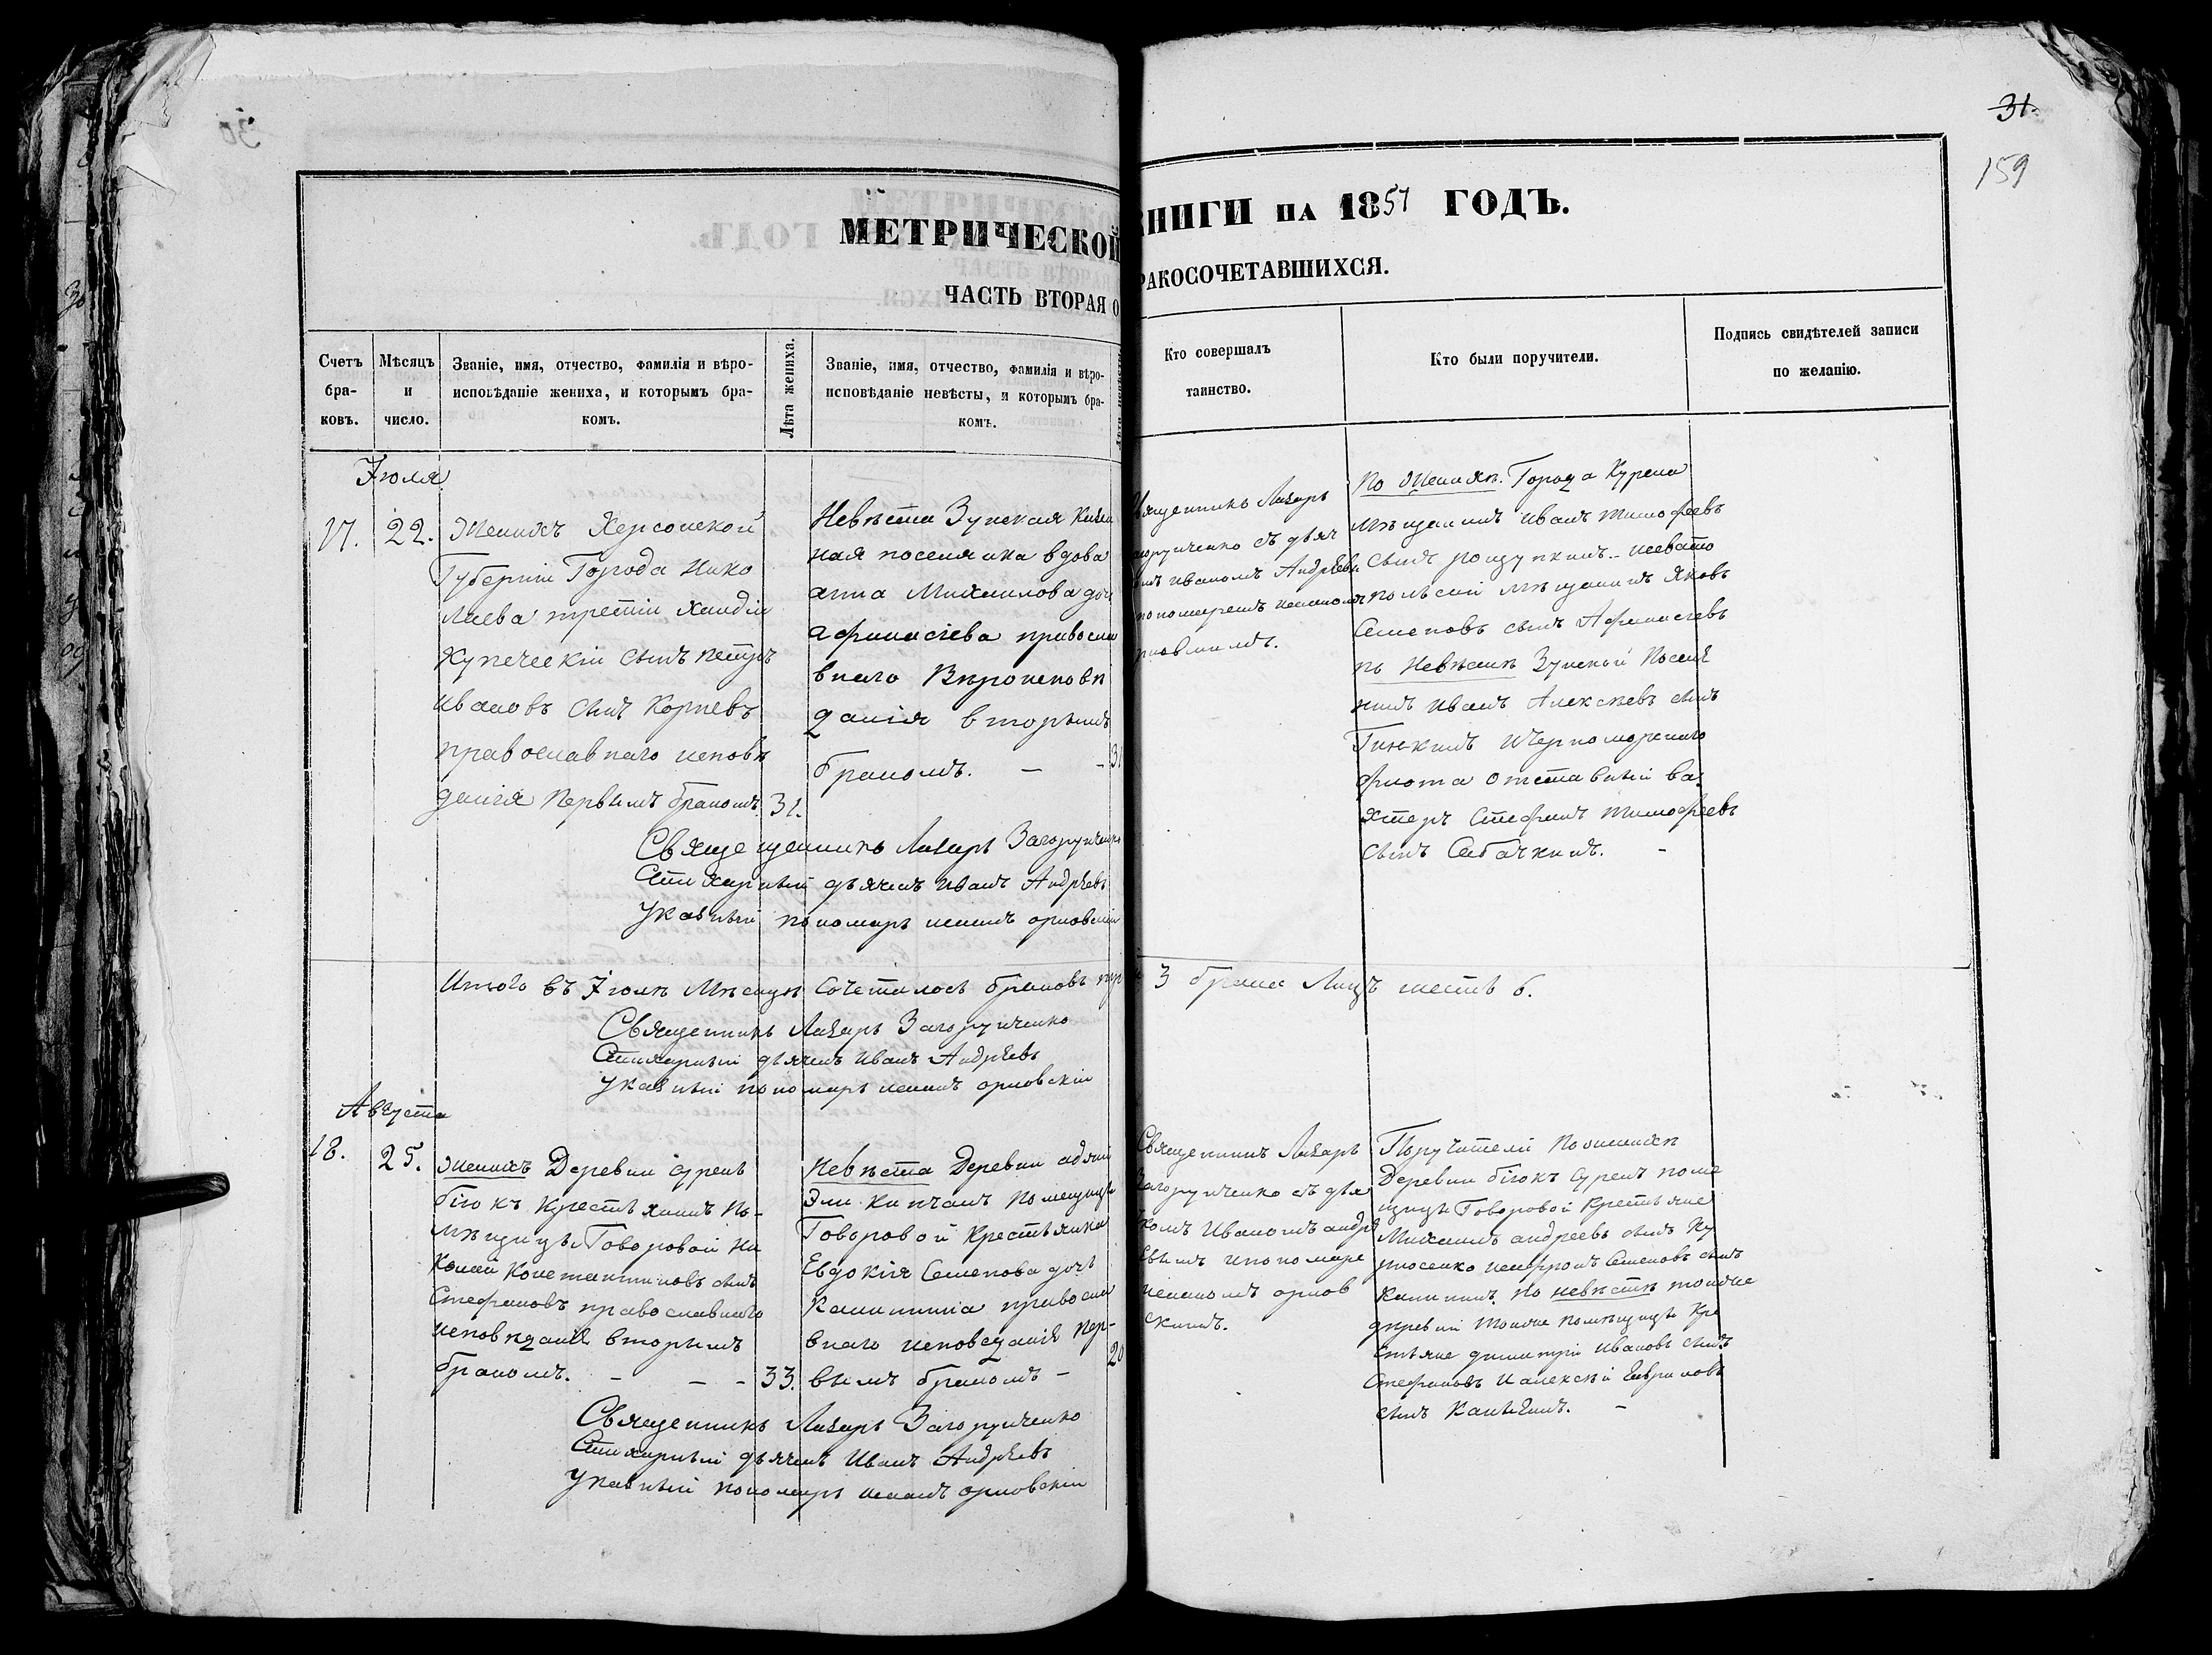 31.
159
МЕТРИЧЕСКОЙ
КНИГИ НА 1851 ГОДЪ.
ЧАСТЬ ВТОРАЯ О
БРАКОСОЧЕТАВШИХСЯ.
Счетъ бра-ковъ.
Мѣсяцъ и число.
Званіе, имя, отчество, фамилія и вѣро-
исповѣданіе жениха, и которымъ бра-
комъ.
Лѣта жениха.
Званіе, имя, отчество, фамилія и вѣро-
исповѣданіе невѣсты, и которымъ бра-
комъ.
Кто совершалъ
таинство.
Кто были поручители.
Подпись свидѣтелей записи
по желанію.
Іюля
17.
22.
Женихъ Херсонской
Губерніи Города Нико
лаева третій
Купеческій сынъ Петръ
Ивановъ сынъ Корневъ
православнаго исповѣ
данія первымъ бракомъ.
31.
Невѣста Зуйская
ная поселянка вдова
Анна Михаилова доч
Афанасіева правосла
внаго
данія вторымъ
бракомъ. –
31
Священникъ Лазарь
съ дьяч
Иваномъ Андрѣевы
По Женихѣ. Города
мѣщанинъ Иванъ Тимофеевъ
сынъ
мѣщанинъ Яковъ
Семеновъ сынъ Афанасіевъ
по Невѣстѣ Зуйскій
Иванъ Алексѣевъ сынъ
Черноморскаго
флота отставный ва-
хтеръ Стефанъ Тимофеевъ
сынъ Собачкинъ. –
Священникъ Лазарь Загорученко
Стихарный дьячекъ Иванъ Андрѣевъ
Указный пономарь орловскій
Итого въ Іюлѣ мѣсяцѣ сочеталось браковъ
3 брака Лицъ шесть 6.
Священникъ Лазарь Загорученко
Стихарный дьячекъ Иванъ Андрѣевъ
Указный пономарь орловскій
Августа
18.
25.
Женихъ Деревни Сурень
біюкъ крестьянинъ по-
мѣщицы Говоровой Ни
колай Константиновъ сынъ
Стефановъ православнаго
исповѣданія вторымъ
бракомъ. – – –
33.
Невѣста Деревни
Эли кипчакъ помещицы
Говоровой крестьянка
Евдокія Семенова дочь
Калинина правосла
внаго исповеданія пер-
вымъ бракомъ –
20
Священникъ Лазарь
Загорученко съ дья
комъ Иваномъ андрѣ
евымъ и пономаре
орлов
скимъ.
Поручители по женихѣ
Деревни біюкъ Сурень поме
щицы Говоровой Крестьяне
Михаилъ андреевъ сынъ
Семеновъ сынъ
Калининъ. По невѣстѣ тойже
деревни тойже помѣщицы кре
стьяне димитрій Ивановъ сынъ
Стефановъ и алексѣй Гавриловъ
сынъ
Священникъ Лазарь Загорученко
Стихарный дьячекъ Иванъ Андрѣевъ
Указный пономарь орловскій